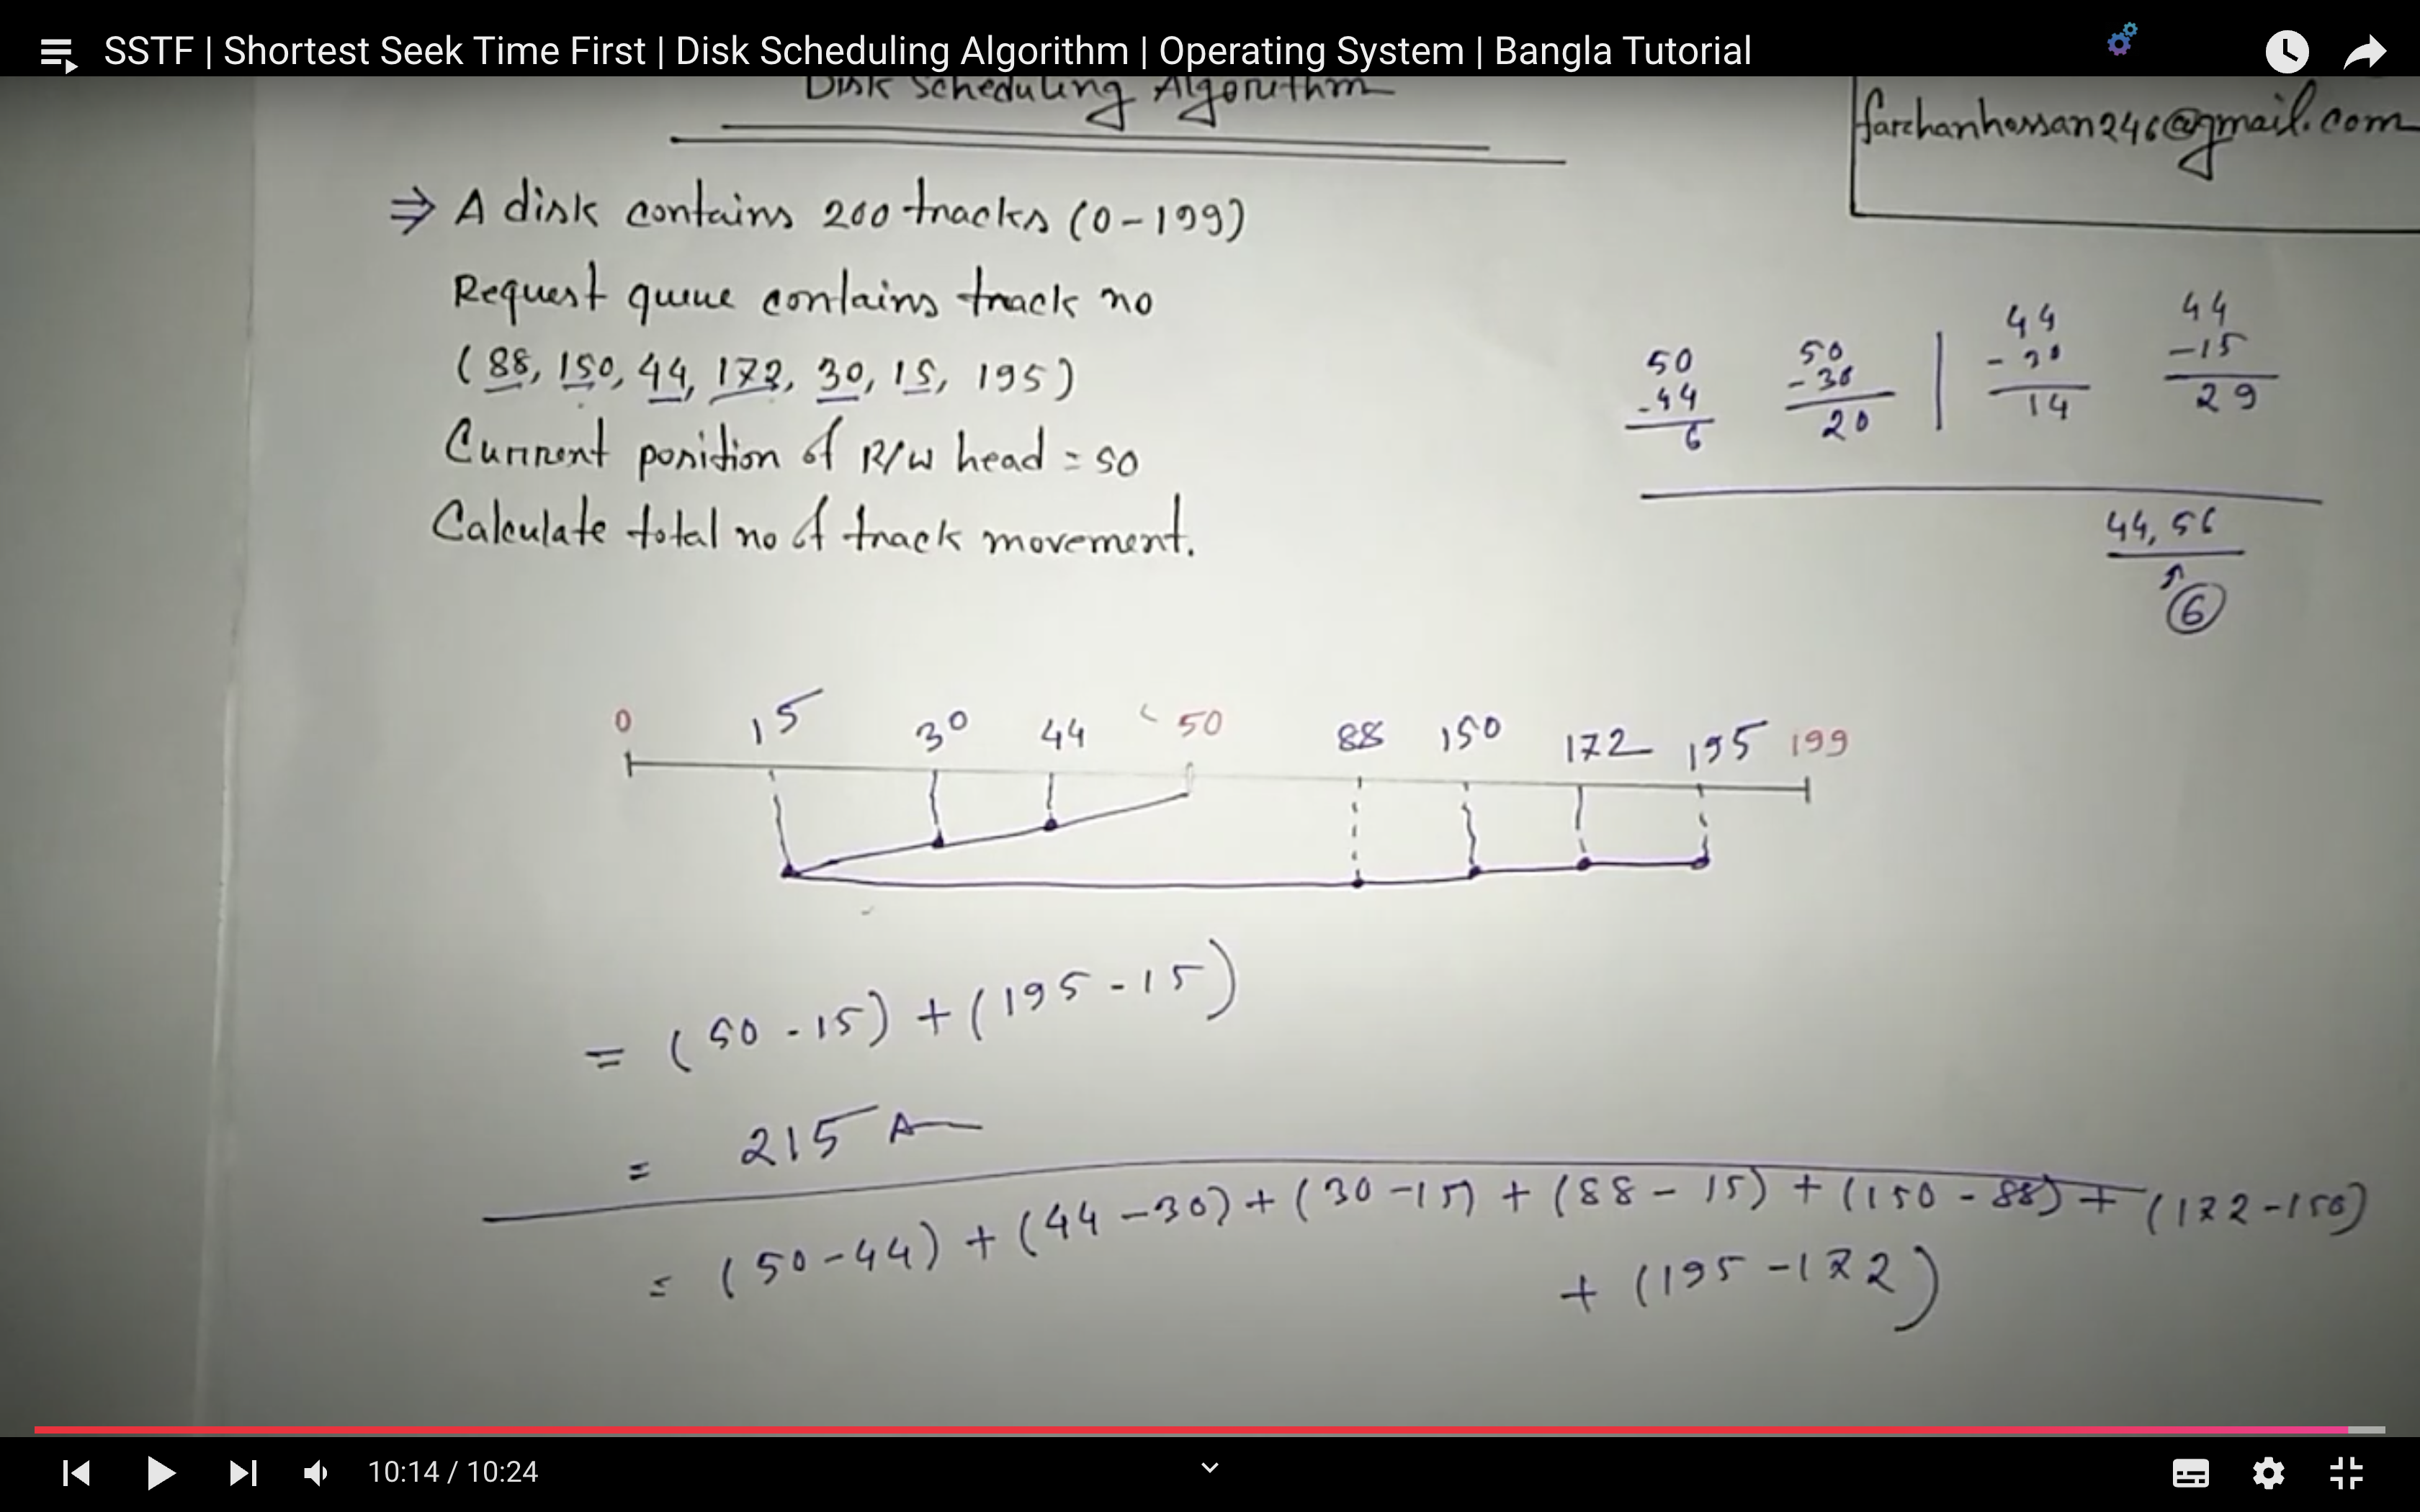 SSTF | Shortest Seek Time First | Disk Scheduling Algorithm | Operating System | Bangla Tutorial
Disk Scheduling Algorithm
farchanhossan246@gmail.com
⇒ A disk contains 200 tracks (0-199)
Request queue contains track no
(88, 150, 44, 172, 30, 15, 195)
Current position of R/W head = 50
Calculate total no of track movement.
50 50 | 44 44
-44 -30 | -30 -15
6 20 | 14 29
44, 56
↑
6
0 15 30 44 50 88 150 172 195 199
= (50-15) + (195-15)
= 215
= (50-44) + (44-30) + (30-15) + (88-15) + (150-88) + (172-150)
+ (195-172)
10:14 / 10:24